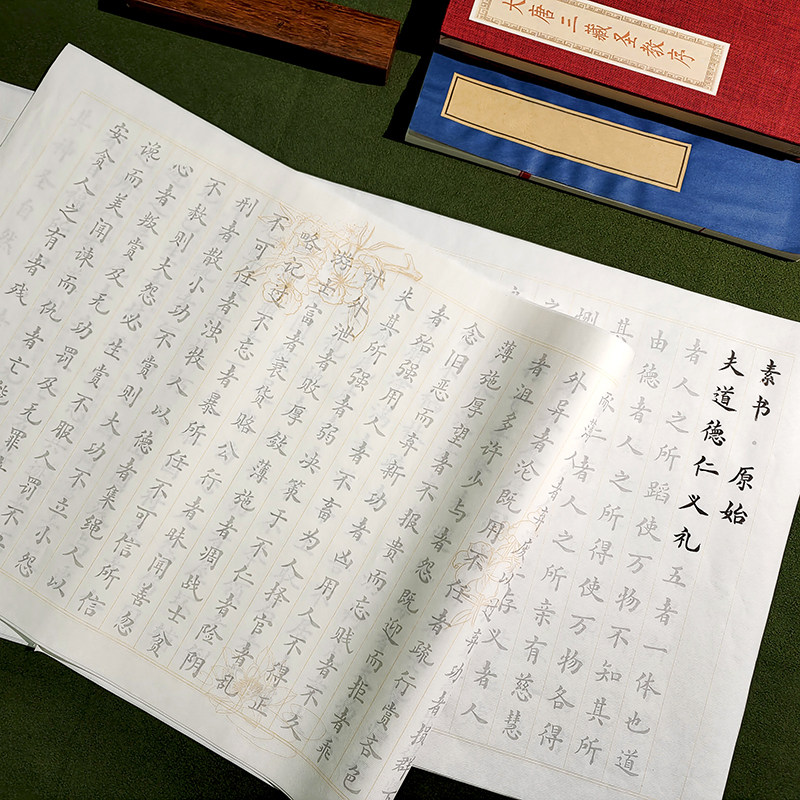 大唐三藏圣教序
素书·原始
夫道德仁义礼五者一体也道
者人之所蹈使万物不知其所
由德者人之所得使万物各得
其欲仁者人之所亲有慈慧
外异者沦既用不任者疏行赏吝色
者沮多许少与者怨既迎而拒者乖
薄施厚望者不报贵而忘贱者不久
念旧恶而弃新功者凶用人不得正
者殆强用人者不畜为人择官者乱
失其所强者弱决策于不仁者险阴
计外泄者败厚敛薄施者凋战士贫
游士富者衰货赂公行者昧闻善忽
略记过不忘者暴所任不可信所信
不可任者浊牧人以德者集绳人以
刑者散小功不赏则大功不立小怨
不赦则大怨必生赏不服人罚不
心者叛赏及无功罚及无罪者
谗而美闻谏而仇者亡能
安贪人之有者残